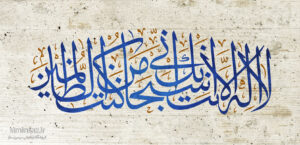 لا اله الا انت سبحانك انی كنت من الظالمین